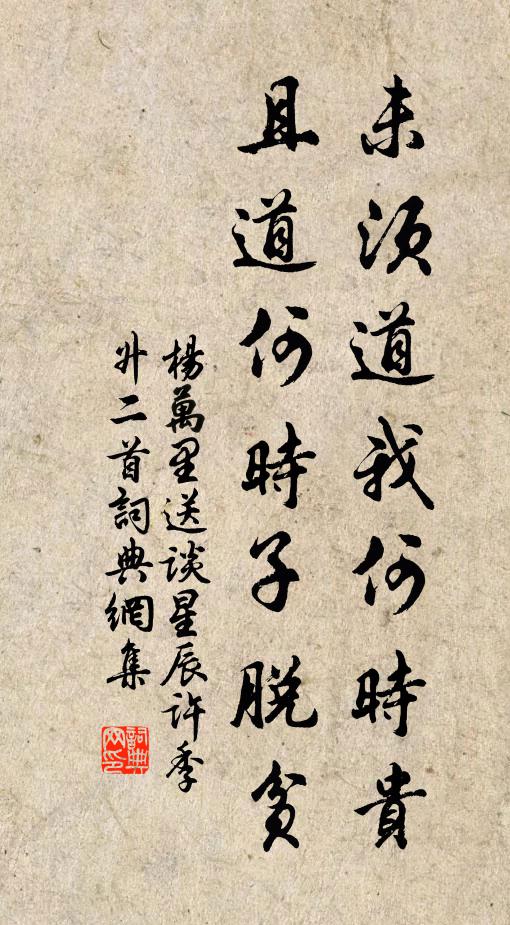 未須道我何時貴
且道何時子脫貧
楊萬里送談星辰許季
升二首詞典網集
詞典
网印